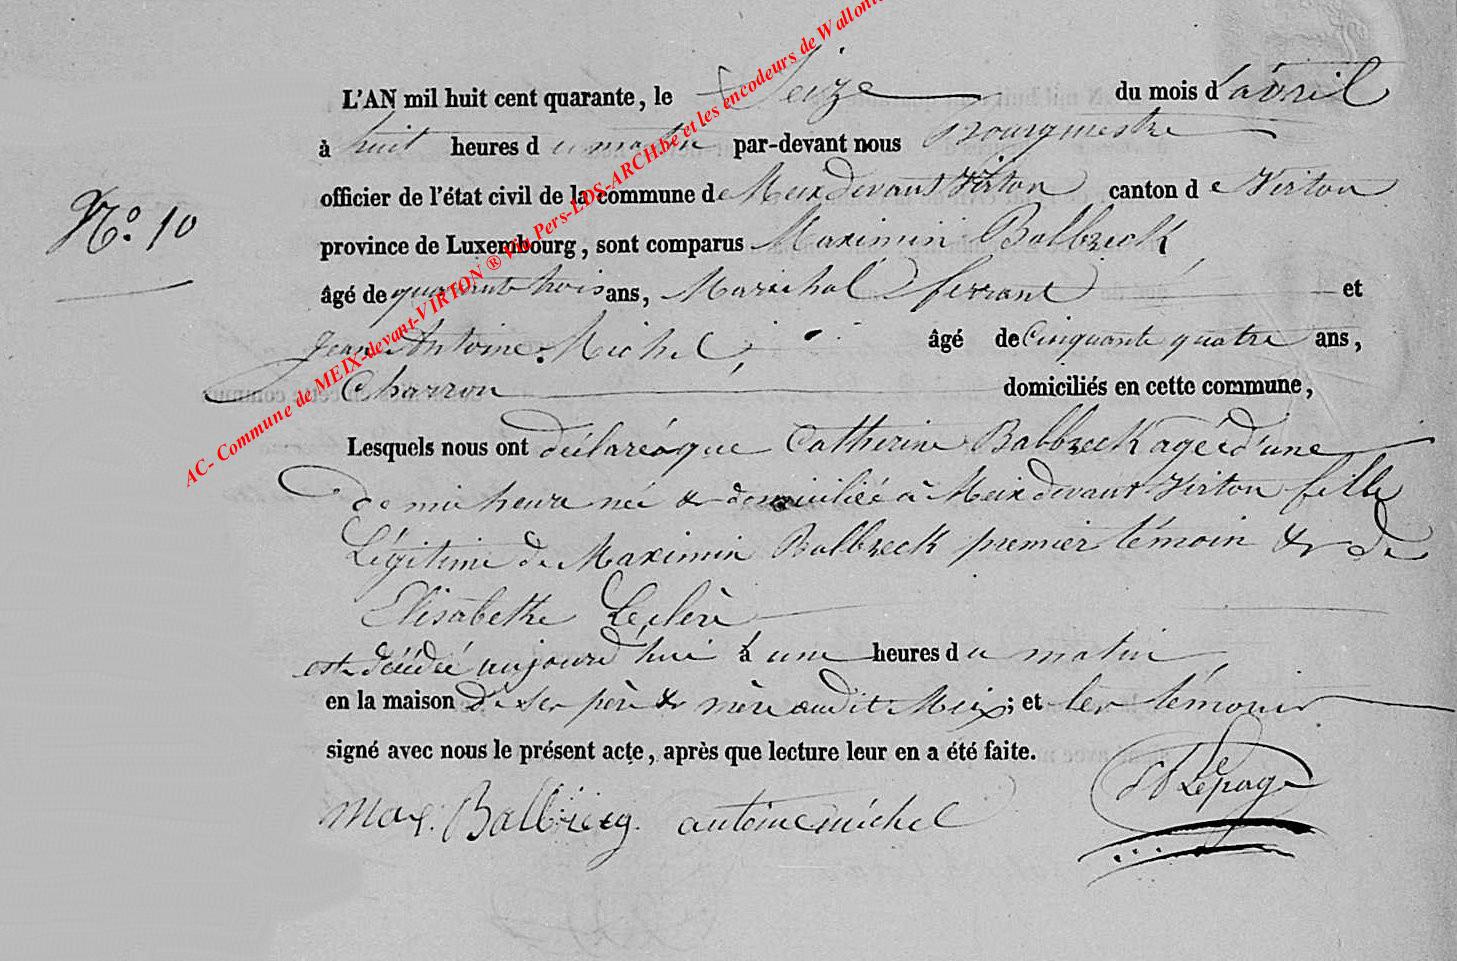 N.o 10
L'AN mil huit cent quarante, le Seize du mois d'avril
à huit heures du matin par-devant nous Bourgmestre
officier de l'état civil de la commune de Meix devant Virton canton de Virton
province de Luxembourg, sont comparus Maximin Balbreck
âgé de quarante trois ans, Maréchal ferrant et
Jean Antoine Michel, âgé de Cinquante quatre ans,
Charron domiciliés en cette commune,
Lesquels nous ont déclaré que Catherine Balbreck agée d'une
demi heure née & domiciliée à Meix devant Virton fille
Légitime de Maximin Balbreck premier témoin & de
Elisabethe Leclère
est décédée aujourd'hui à une heures du matin,
en la maison de ses père & mère audit Meix; et les témoins
signé avec nous le présent acte, après que lecture leur en a été faite.
Max. antoine michel Lepage
AC- Commune de MEIX-devant-VIRTON ® Via Pers-LDS-ARCH.be et les encodeurs de Wallonie